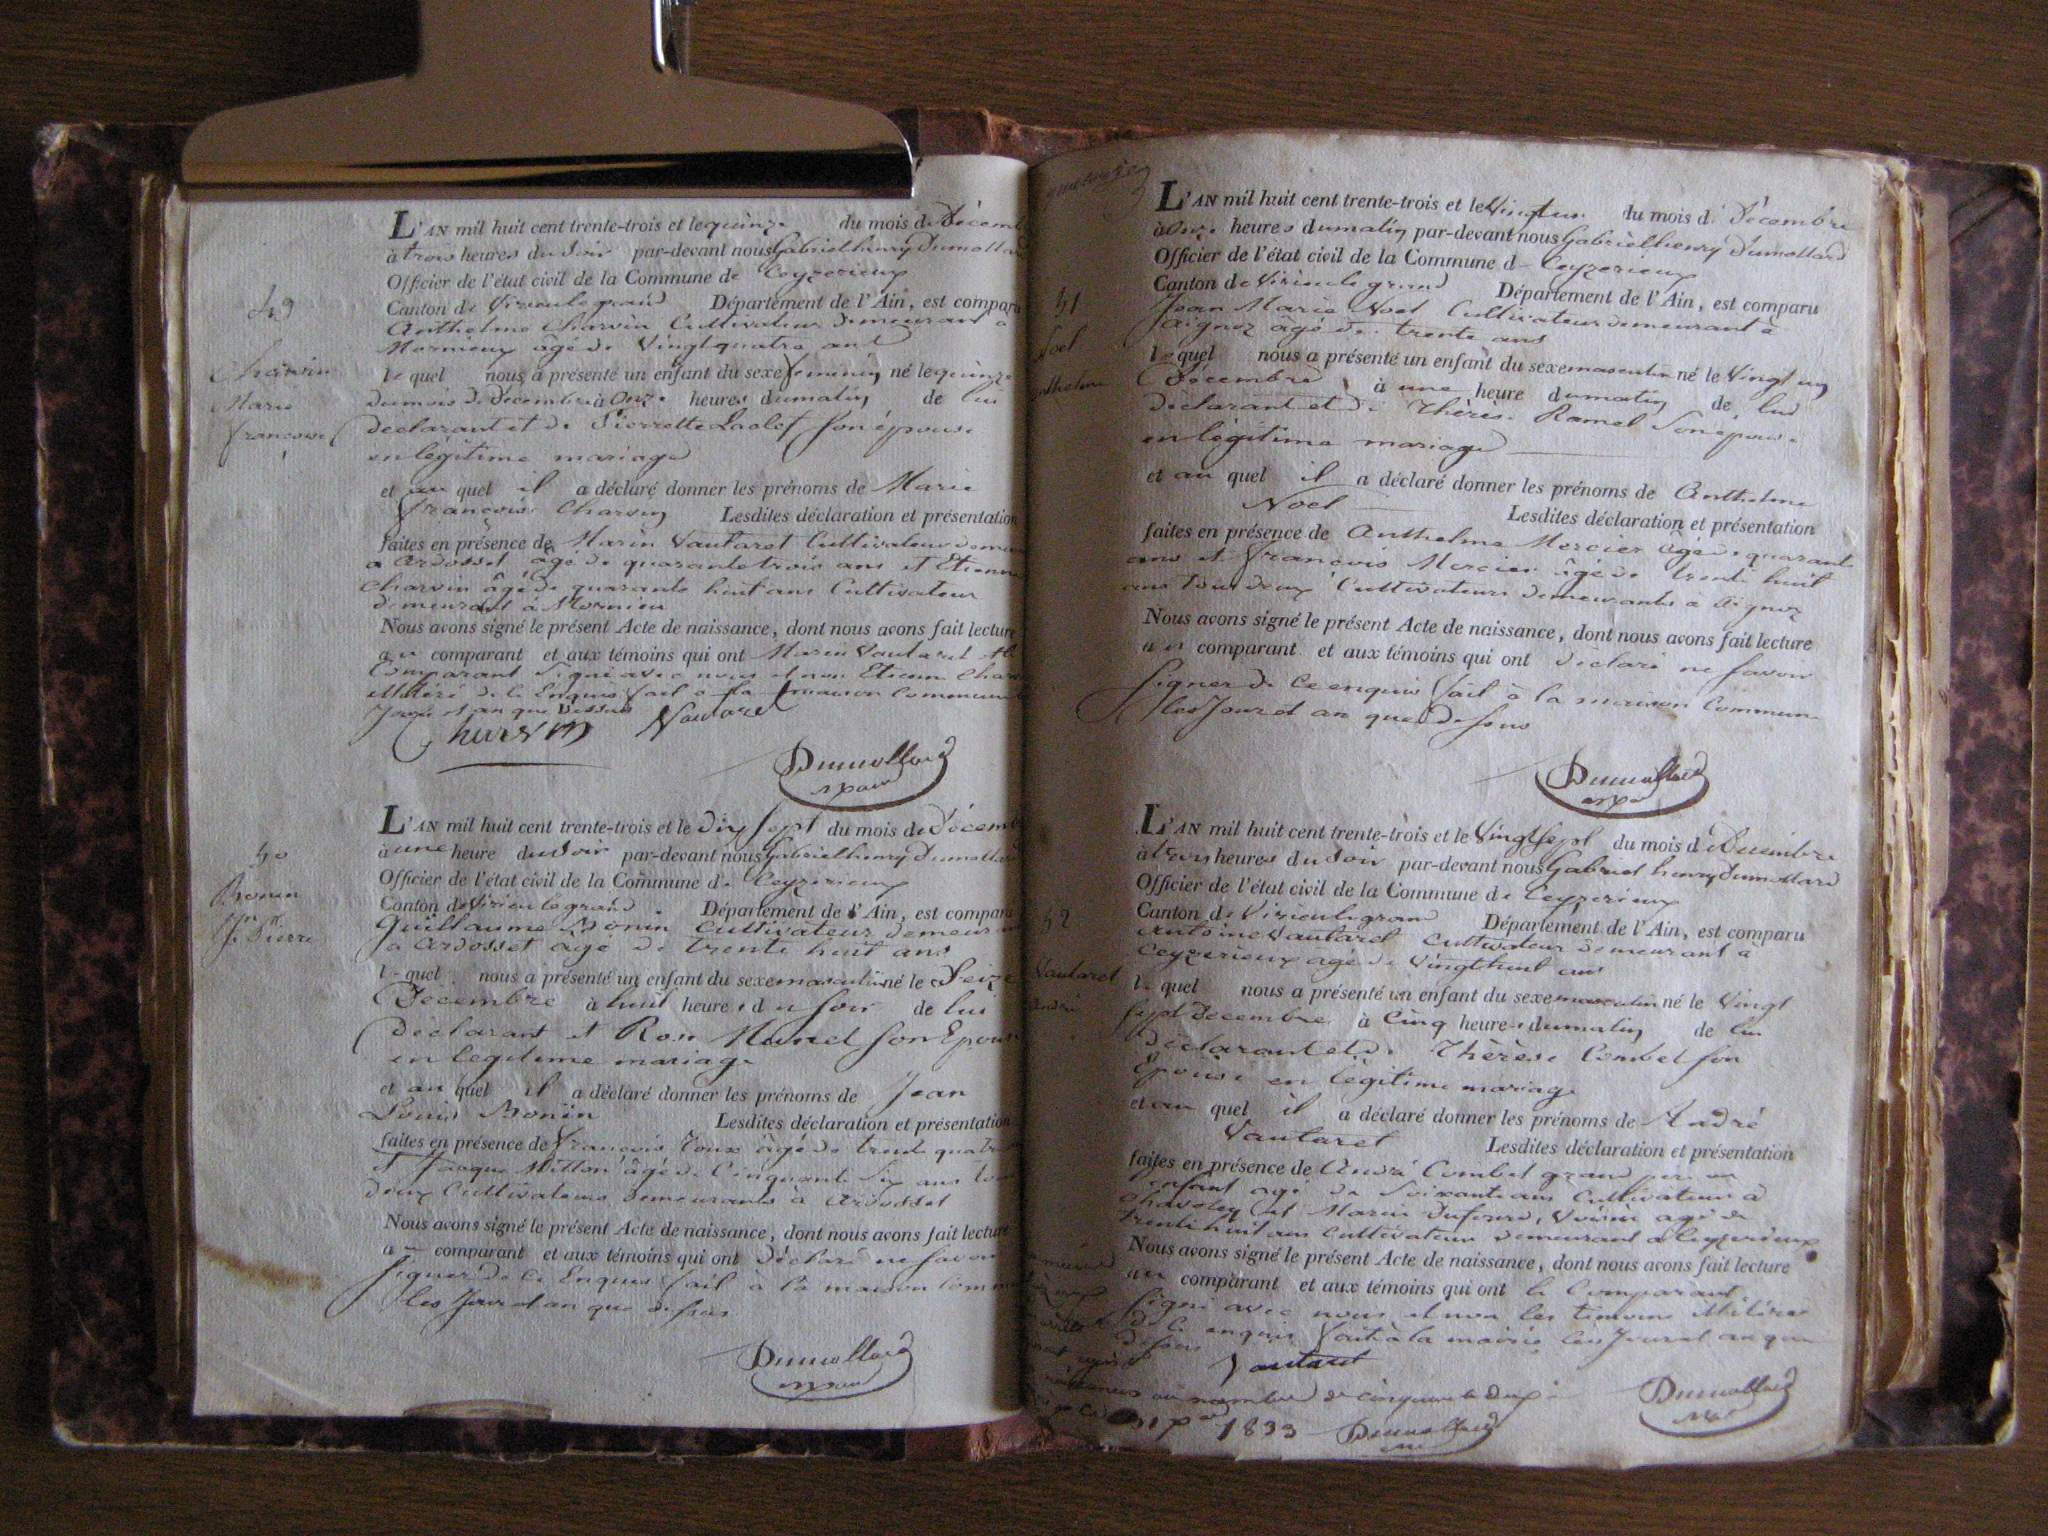 L'AN mil huit cent trente-trois et le quinze du mois de Décemb
à trois heures du soir par-devant nous Gabriel henry Dumollard
Officier de l'état civil de la Commune de Ceyzerieux
49
Canton de Virieu le grand Département de l'Ain, est comparu
Anthelme Charvin Cultivateur demeurant a
Mornieux âgé de Vingt quatre ans
Charvin
Marie
françoise
le quel nous a présenté un enfant du sexe feminin né le quinze
du mois de Décembre à onze heures du matin de lui
declarant et de Pierrette son épouse
en légitime mariage
et au quel il a déclaré donner les prénoms de Marie
françoise Charvin Lesdites déclaration et présentation
faites en présence de Marin Vautaret Cultivateur
a Ardosset âgé de quarante trois ans et Etienne
Charvin âgé de quarante huit ans Cultivateur
demeurant à Mornieu
Nous avons signé le présent Acte de naissance, dont nous avons fait lecture
au comparant et aux témoins qui ont Marin Vautaret et le
Comparant signé avec nous et non Etienne Charvin
illitéré de ce Enquis fait a la maison Commune
Jour et an que Dessus
Charvin Vautaret
Dumollard
L'AN mil huit cent trente-trois et le dix sept du mois de Décemb
à une heure du soir par-devant nous Gabriel henry Dumollard
50
Officier de l'état civil de la Commune de Ceyzerieux
Canton de Virieu le grand Département de l'Ain, est comparu
Bonin
Jn Pierre
Guillaume Bonin cultivateur demeurant
a Ardosset agé de trente huit ans
le quel nous a présenté un enfant du sexe masculin né le Seize
Décembre à huit heures du soir de lui
déclarant et Rose son Epouse
en legitime mariage
et au quel il a déclaré donner les prénoms de Jean
Louis Bonin Lesdites déclaration et présentation
faites en présence de françois Roux âgé de trente quatre
et Jacque Mitton âgé de Cinquante Six ans tous
deux Cultivateurs demeurants à Ardosset
Nous avons signé le présent Acte de naissance, dont nous avons fait lecture
au comparant et aux témoins qui ont déclaré ne savoir
signer de ce Enquis fait à la maison Comm
les Jour et an que dessus
Dumollard
L'AN mil huit cent trente-trois et le Vingt un du mois de Décembre
à onze heures du matin par-devant nous Gabriel henry Dumollard
Officier de l'état civil de la Commune de Ceyzerieux
Canton de Virieu le grand Département de l'Ain, est comparu
51
Jean Marie Noel Cultivateur demeurant à
Aignoz âgé de trente ans
Noel
Anthelme
le quel nous a présenté un enfant du sexe masculin né le Vingt un
Décembre à une heure du matin de lui
déclarant et de Thérèse Ramel Son épouse
en légitime mariage
et au quel il a déclaré donner les prénoms de Anthelme
Noel Lesdites déclaration et présentation
faites en présence de Anthelme Mercier âgé de quarante
ans et françois Mercier âgé de trente huit
ans tous deux Cultivateurs demeurants à Aignoz
Nous avons signé le présent Acte de naissance, dont nous avons fait lecture
au comparant et aux témoins qui ont déclaré ne savoir
signer de ce enquis fait à la maison Commune
les Jour et an que Dessus
Dumollard
L'AN mil huit cent trente-trois et le Vingt Sept du mois de Décembre
à trois heures du soir par-devant nous Gabriel henry Dumollard
Officier de l'état civil de la Commune de Ceyzerieux
52
Canton de Virieu le grand Département de l'Ain, est comparu
Antoine Vautaret cultivateur demeurant à
Ceyzerieux agé de Vingt huit ans
Vautaret
André
le quel nous a présenté un enfant du sexe masculin né le Vingt
sept Décembre à Cinq heures du matin de lui
déclarant et de Thérèse Combet son
Epouse en légitime mariage
et au quel il a déclaré donner les prénoms de André
Vautaret Lesdites déclaration et présentation
faites en présence de André Combet grand père
enfant agé de Soixante ans Cultivateur à
et Marin Dufour, Voisin agé de
trente huit ans Cultivateur demeurant a Ceyzerieux
Nous avons signé le présent Acte de naissance, dont nous avons fait lecture
au comparant et aux témoins qui ont le Comparant
signé avec nous et non les temoins illitérés
de ce enquis fait à la mairie les Jour et an que
dessus
Vautaret
Dumollard
naissances au nombre de cinquante deux
1833 Dumollard